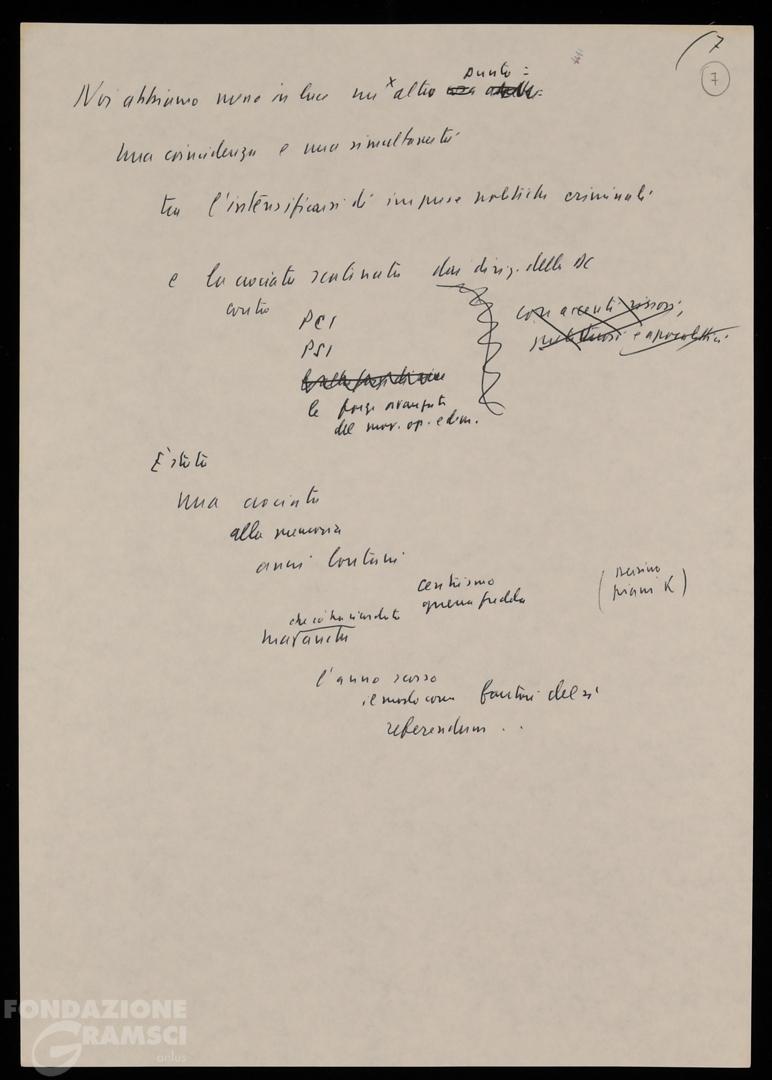 7
7
Noi abbiamo messo in luce un altro punto:
una coincidenza e una simultaneità
tra l'intensificarsi di imprese politiche criminali
e la crociata scatenata dai dirig. della DC
contro
PCI
PSI
le forze avanzate
del mov. op. e dem.
con accenti rissosi,
e apocalittici
È stata
una crociata
alla memoria
anni lontani
centrismo
guerra fredda
(persino
piani K)
che ci ha ricordato
ma anche
l'anno scorso
il modo come fautori del sì
referendum . .
FONDAZIONE
GRAMSCI
onlus